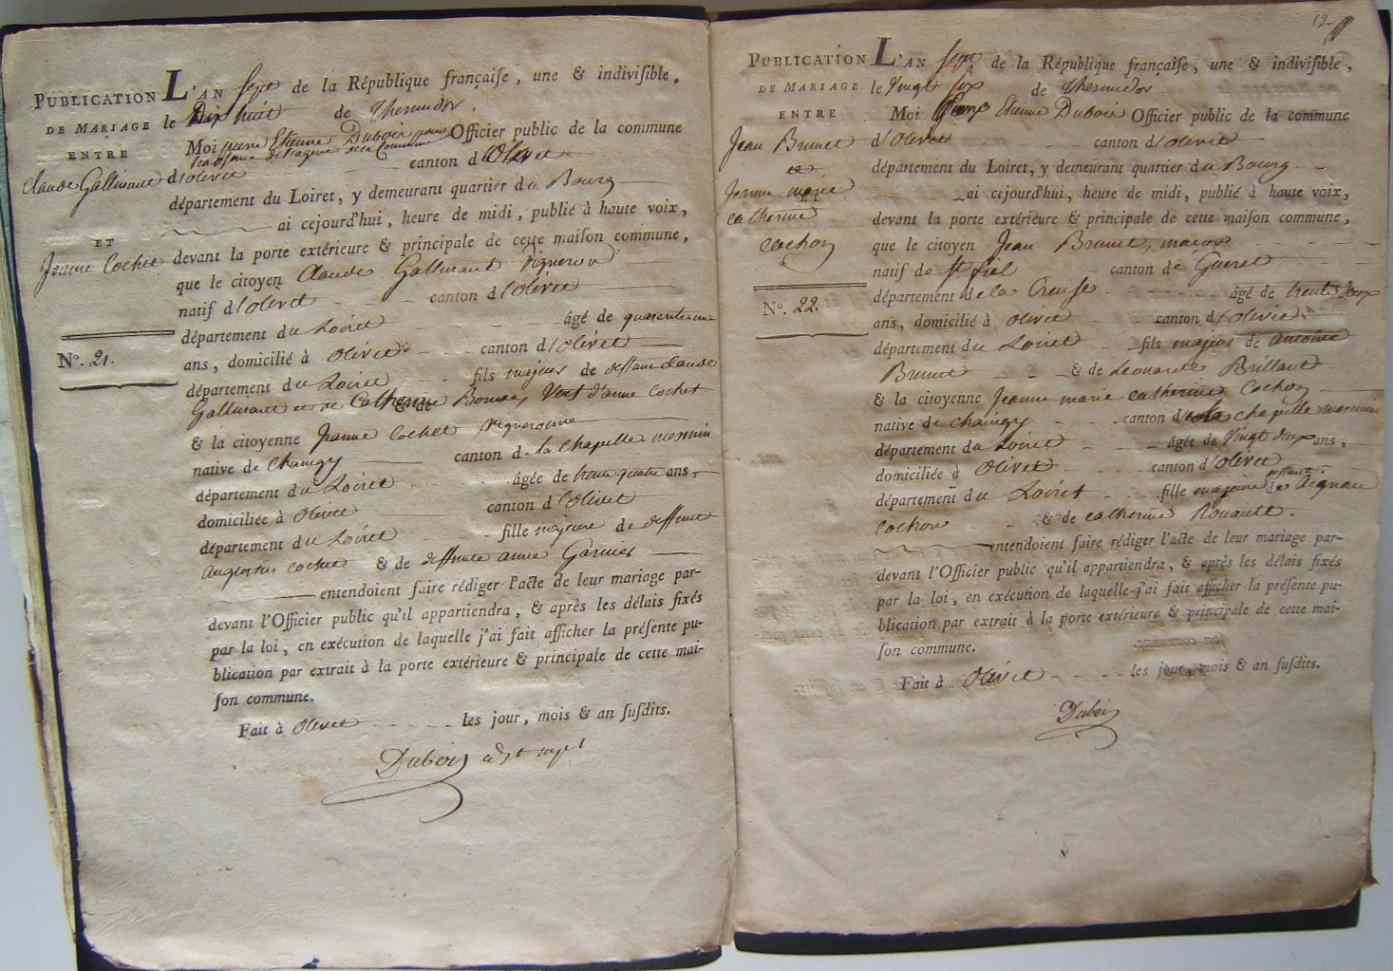 PUBLICATION
DE MARIAGE
ENTRE
Claude Gallerand
ET
Jeanne Cochet
N°. 21.
L'AN sept de la République françaiſe, une & indiviſible,
le Dix huit de Thermidor.
Moi pierre Etienne Dubois Officier public de la commune
d'olivet canton d'Olivet
département du Loiret, y demeurant quartier du Bourg
ai cejourd'hui, heure de midi, publié à haute voix,
devant la porte extérieure & principale de cette maiſon commune,
que le citoyen Claude Gallerand Vigneron
natif d'olivet canton d'olivet
département du Loiret âgé de quarante un
ans, domicilié à olivet canton d'olivet
département du Loiret fils majeur de deffunt Claude
Gallerand et de Catherine Venf d'anne Cochet
& la citoyenne Jeanne Cochet Vigneronne
native de Chaingy canton de la Chapelle mesmin
département du Loiret âgée de trente quatre ans,
domiciliée à Olivet canton d'olivet
département du Loiret fille majeure de deffunt
Cochet & de deffunte anne Garnier
entendoient faire rédiger l'acte de leur mariage par-
devant l'Officier public qu'il appartiendra, & après les délais fixés
par la loi, en exécution de laquelle j'ai fait afficher la préſente pu-
blication par extrait à la porte extérieure & principale de cette mai-
ſon commune.
Fait à Olivet les jour, mois & an ſuſdits.
Dubois
12
PUBLICATION
DE MARIAGE
ENTRE
Jean Brunet
et
Jeanne marie
catherine
Cochon
N°. 22.
L'AN sept de la République françaiſe, une & indiviſible,
le Vingt six de Thermidor
Moi pierre Etienne Dubois Officier public de la commune
d'Olivet canton d'olivet
département du Loiret, y demeurant quartier du Bourg
ai cejourd'hui, heure de midi, publié à haute voix,
devant la porte extérieure & principale de cette maiſon commune,
que le citoyen Jean Brunet, maçon
natif de St fiel canton de Gueret
département de la Creuse âgé de trente deux
ans, domicilié à olivet canton d'olivet
département du Loiret fils majeur de antoine
Brunet & de Leonarde Brillaud
& la citoyenne Jeanne marie catherine Cochon
native de chaingy canton de la chapelle mesmin
département du Loiret âgée de Vingt deux ans,
domiciliée à Olivet canton d'olivet
département du Loiret fille majeure de Aignan
Cochon & de catherine Rouault.
entendoient faire rédiger l'acte de leur mariage par-
devant l'Officier public qu'il appartiendra, & après les délais fixés
par la loi, en exécution de laquelle j'ai fait afficher la préſente pu-
blication par extrait à la porte extérieure & principale de cette mai-
ſon commune.
Fait à Olivet les jour, mois & an ſuſdits.
Dubois